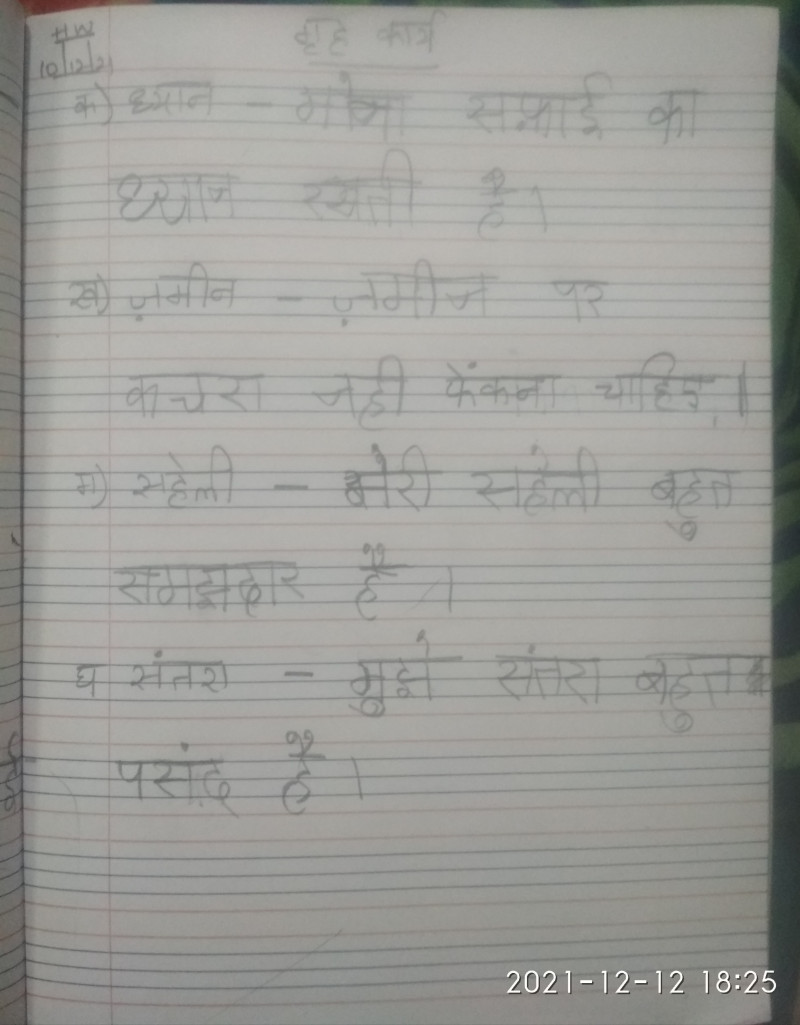 HW
10/12/21
गृह कार्य
क) ध्यान - सफ़ाई का
ध्यान रखती है।
ख) ज़मीन - ज़मीन पर
कचरा नही फेंकना चाहिए।
ग) सहेली - मेरी सहेली बहुत
समझदार है ।
घ संतरा - मुझे संतरा बहुत
पसंद है ।
2021-12-12 18:25